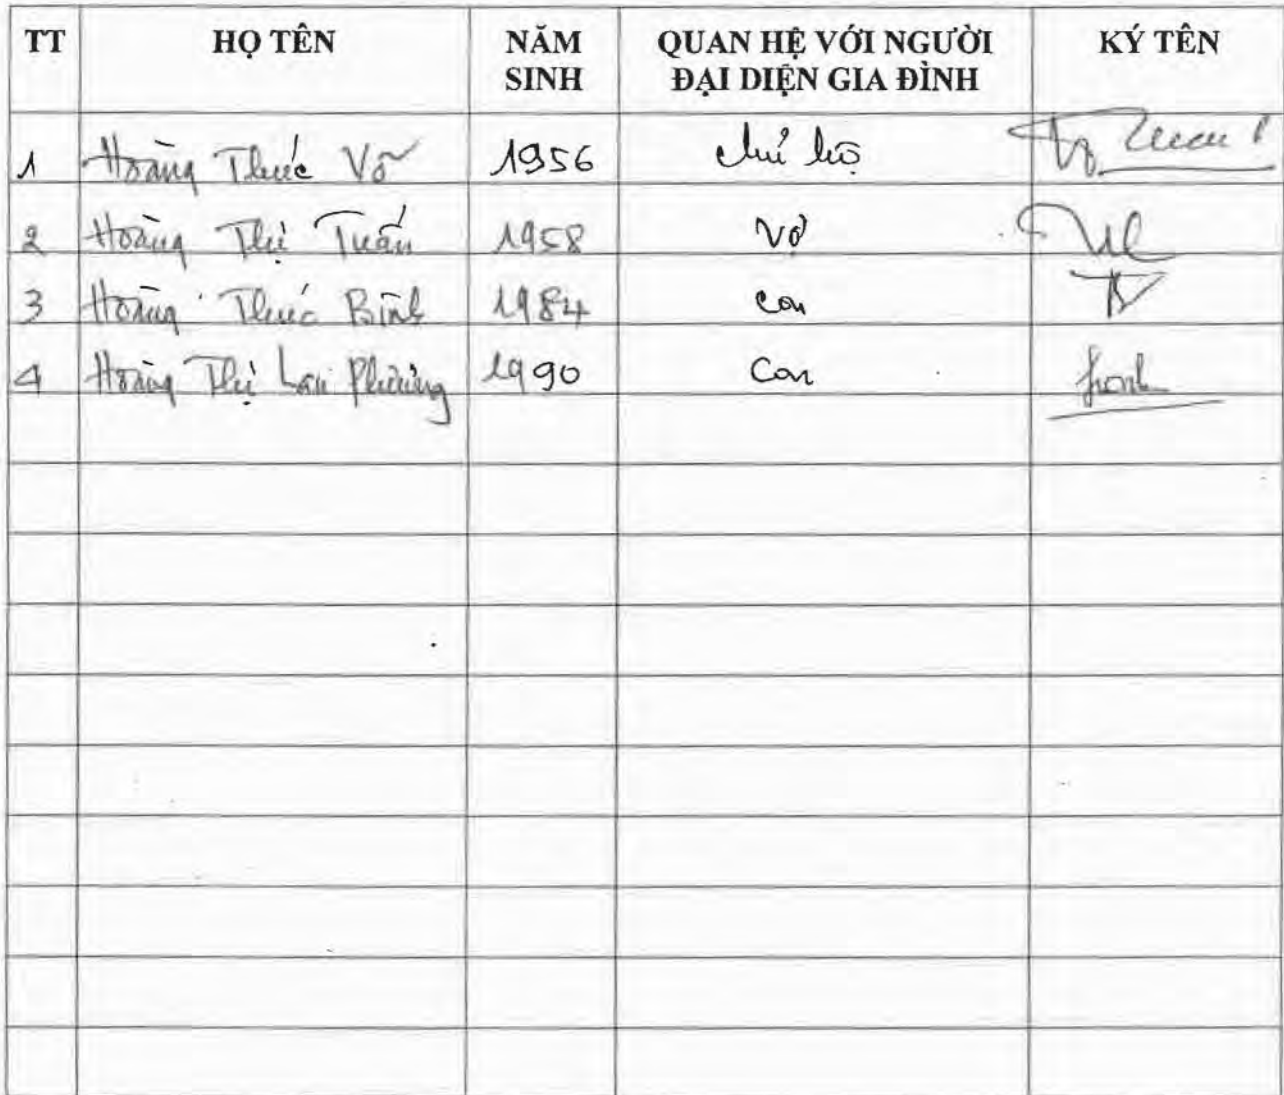 TT HỌ TÊN NĂM SINH QUAN HỆ VỚI NGƯỜI ĐẠI DIỆN GIA ĐÌNH KÝ TÊN
1 Hoàng Thức Võ 1956 chủ hộ
2 Hoàng Thị Tuấn 1958 Vợ
3 Hoàng Thức Bình 1984 con
4 Hoàng Thị Lan Phương 1990 Con